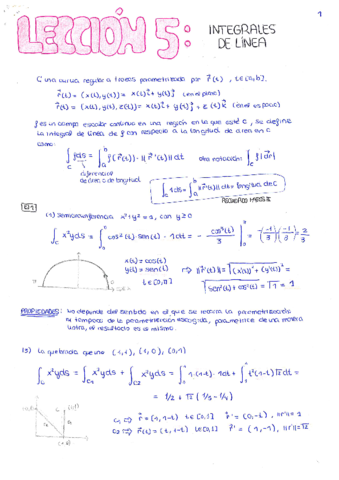 1
LECCIÓN 5: INTEGRALES
DE LÍNEA
C una curva regular a trozos parametrizada por r⃗(t), t∈[a,b].
r⃗(t) = (x(t), y(t)) = x(t)i⃗ + y(t)j⃗ (en el plano)
r⃗(t) = (x(t), y(t), z(t)) = x(t)i⃗ + y(t)j⃗ + z(t)k⃗ (en el espacio)
f es un campo escalar continuo en una región en la que esté C, se define
la integral de línea de f con respecto a la longitud de arco en C
como:
∫_C f ds = ∫_a^b f(r⃗(t)) · ||r⃗'(t)|| dt otra notación ∫_C f |dr⃗|
diferencial
de arco de longitud
∫_C 1 ds = ∫_a^b ||r⃗'(t)|| dt = longitud de C
(1) Semicircunferencia x²+y²=1, con y≥0
∫_C x²y ds = ∫_0^π cos²(t) · sen(t) · 1 dt = - cos³(t)/3 |_0^π = -(-1/3) - (-1/3) = 2/3
x(t) = cos(t)
y(t) = sen(t) ⇒ ||r'(t)|| = √((x'(t))² + (y'(t))²) =
t∈[0,π] √(sen²(t) + cos²(t)) = √1 = 1
PROPIEDADES: No depende del sentido en el que se recorra la parametrización
ni tampoco de la parametrización escogida, parametrice de una manera
u otra, el resultado es el mismo.
(3) La quebrada que une (1,1), (1,0), (0,1)
∫_C x²y ds = ∫_C1 x²y ds + ∫_C2 x²y ds = ∫_0^1 1·(1-t)·1 dt + ∫_0^1 t²(1-t)√2 dt
= 1/2 + √2 (1/3 - 1/4)
(0,1) (1,1)
(1,0)
C1 ⇒ r⃗ = (1, 1-t) t∈[0,1] r⃗' = (0,-1), ||r'|| = 1
C2 ⇒ r⃗(t) = (t, 1-t) t∈[0,1] r⃗' = (1,-1), ||r'|| = √2